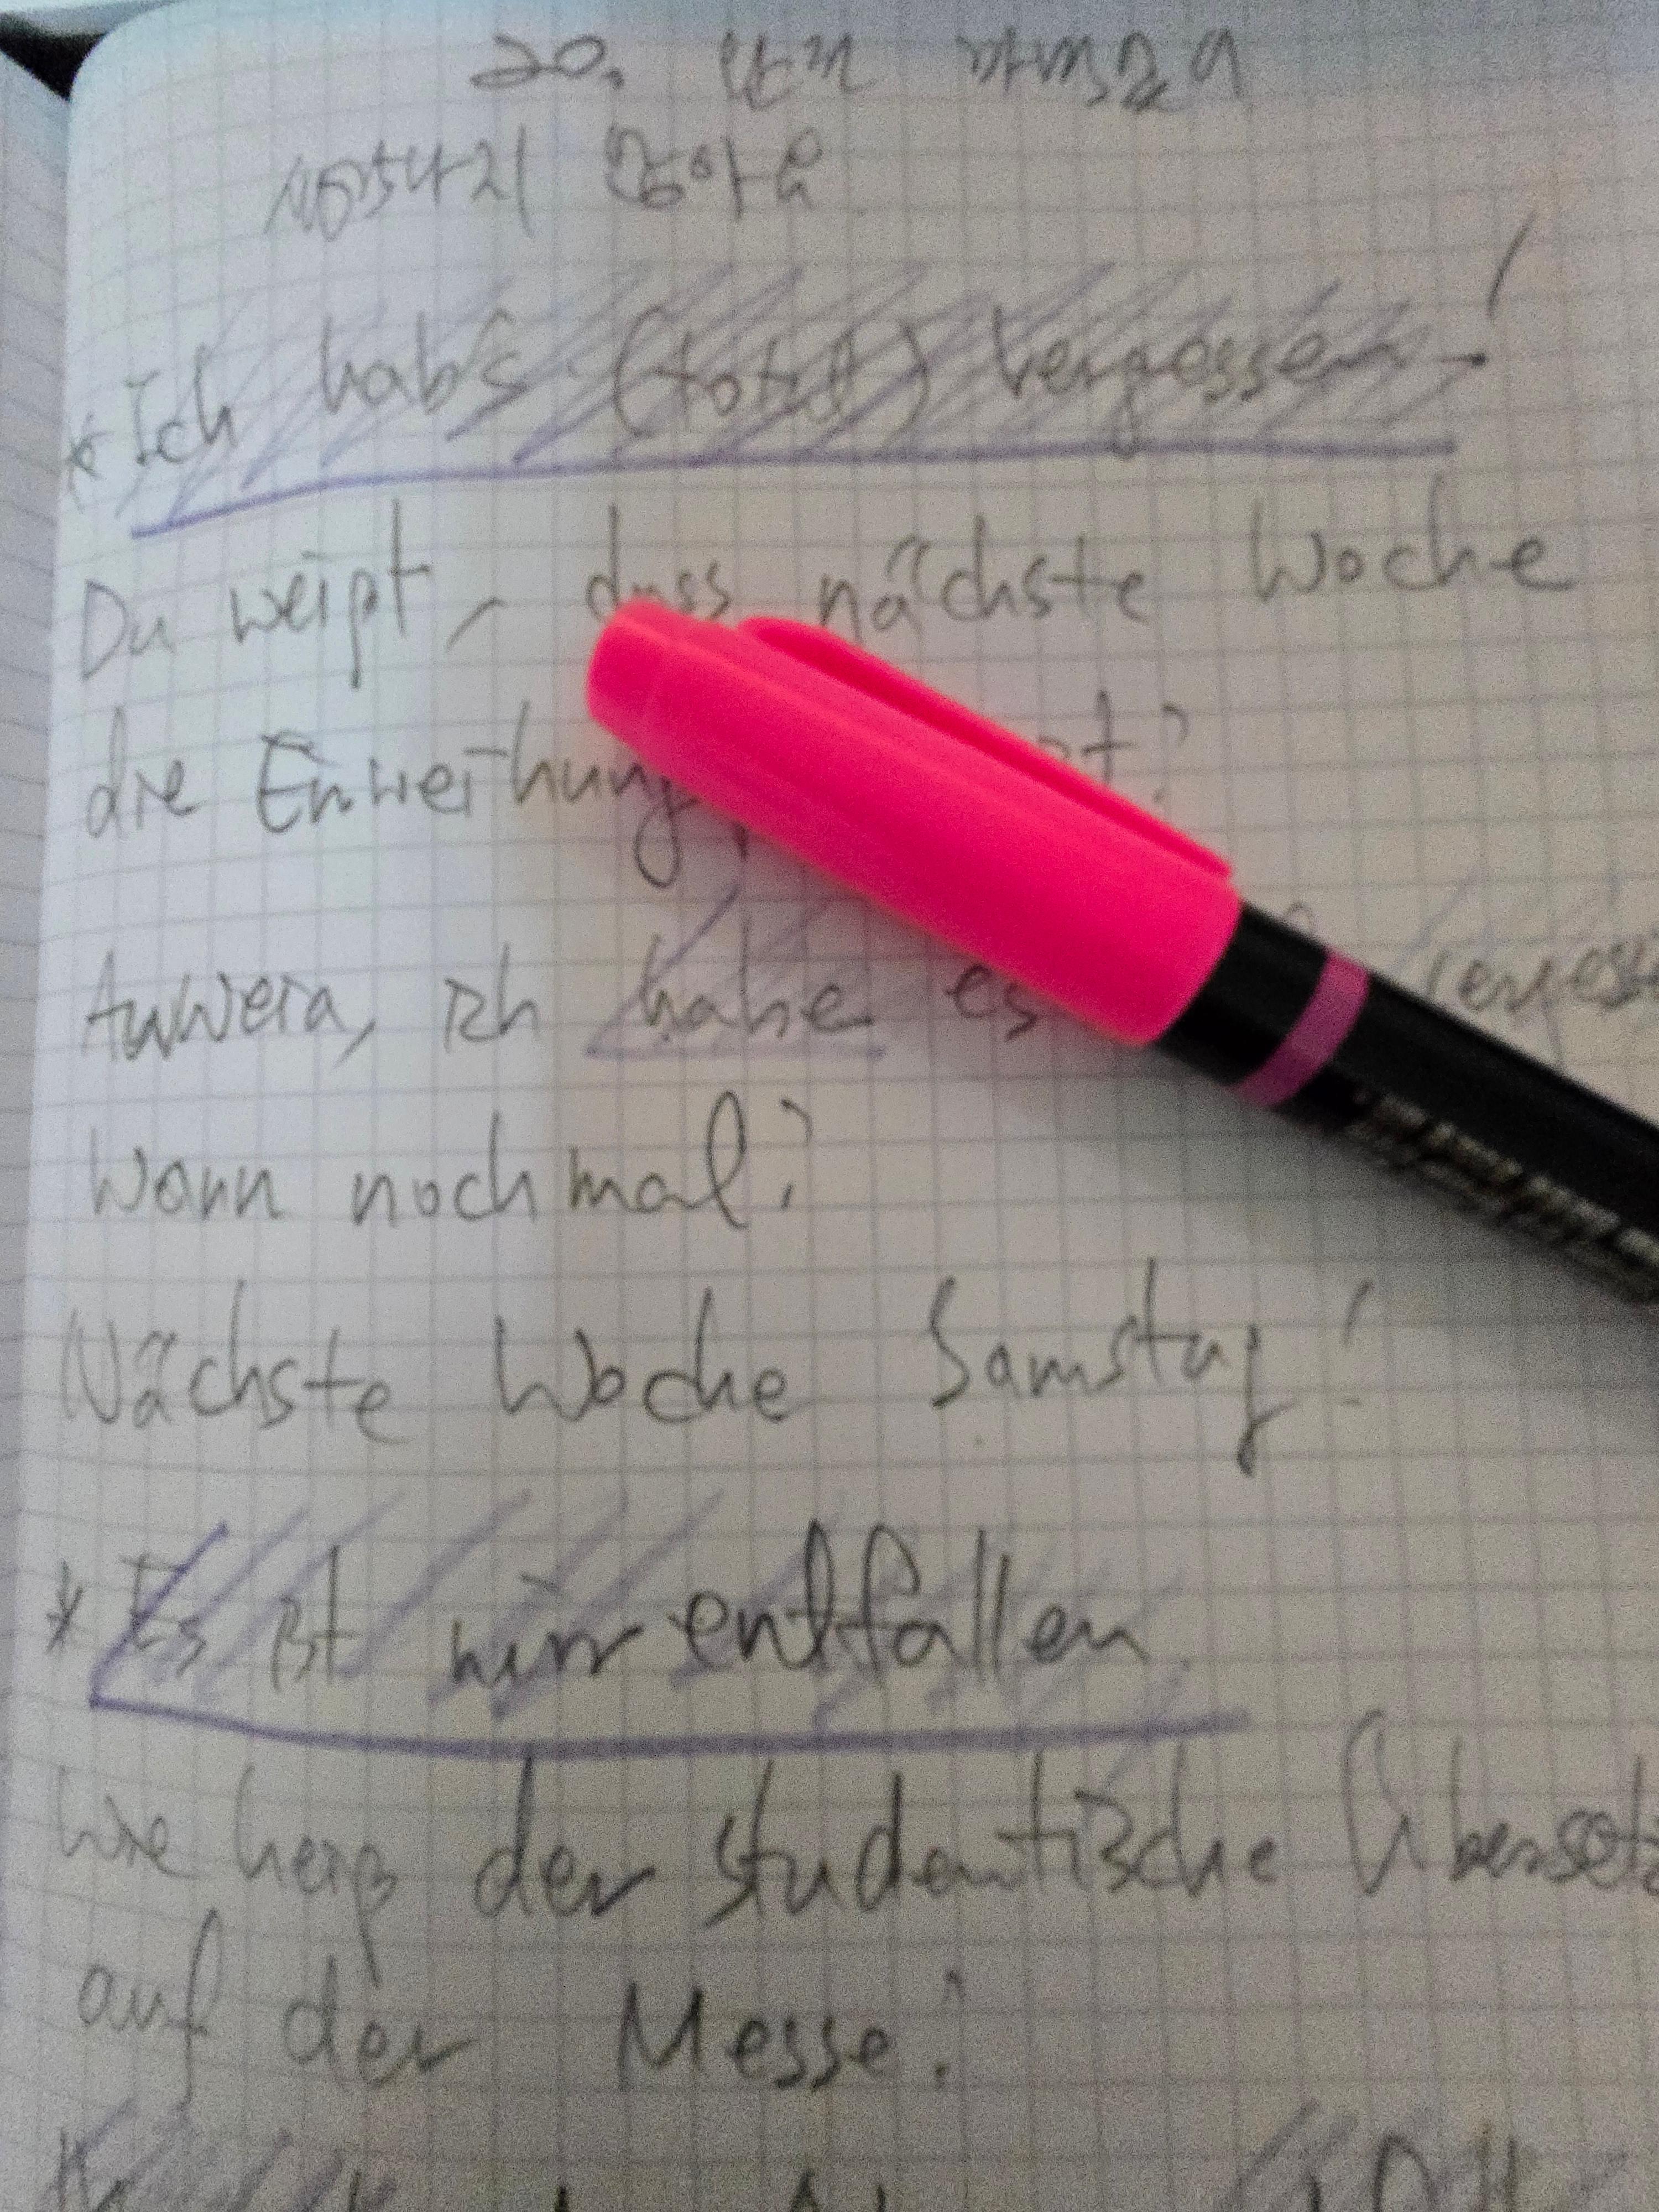 20. 난 까먹었어
생각나지 않아요
*Ich hab's (total) vergessen!
Du weißt, dass nächste Woche
die Einweihung
Auweia, ich habe es
Wann nochmal?
Nächste Woche Samstag!
* Es ist mir entfallen
Wie heiß der studentische
auf der Messe?